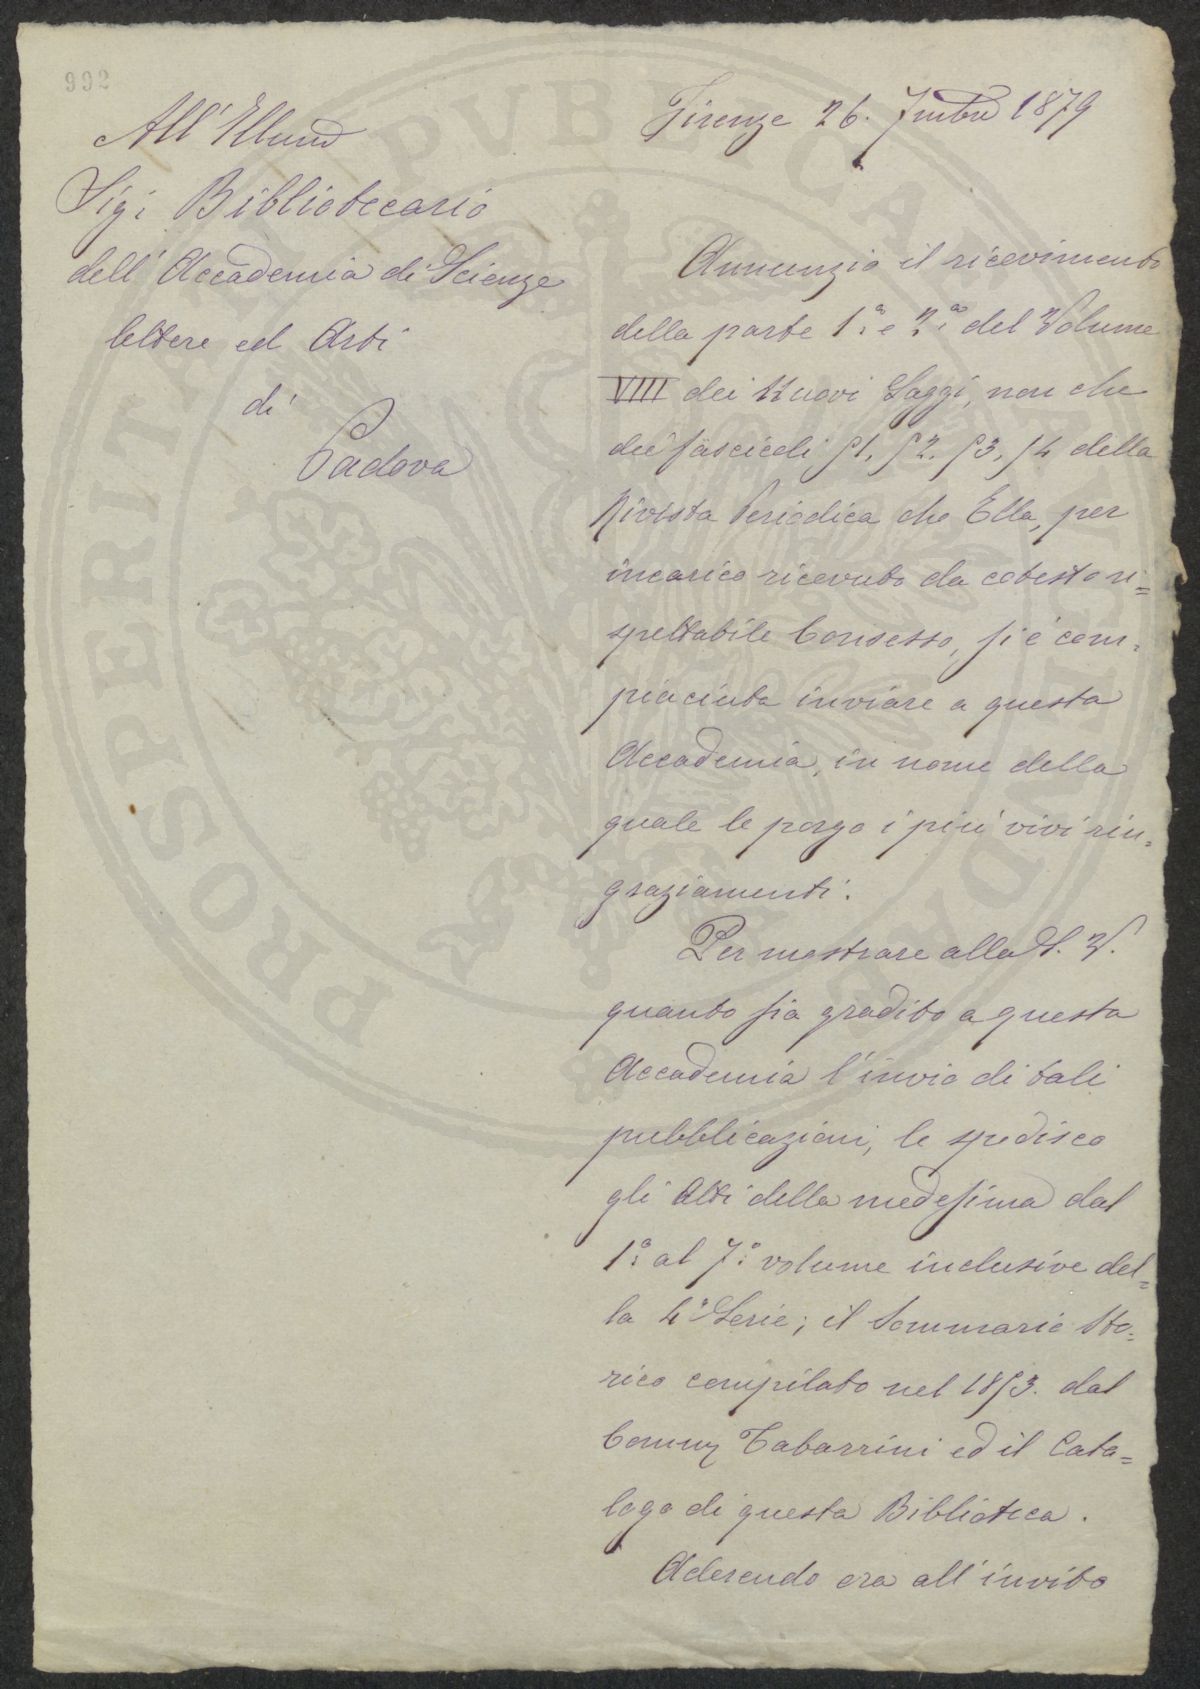 992
Firenze 26. 7mbre 1879
All' Illmo
Sigr Bibliotecario
dell' Accademia di Scienze
lettere ed Arti
di
Padova
Annunzio il ricevimento
della parte 1a e 2a del Volume
VIII dei Nuovi Saggi, non che
dei fascicoli 51, 52, 53, 54 della
Rivista Periodica che Ella, per
incarico ricevuto da cotesto ri=
spettabile Consesso, si è com=
piaciuta inviare a questa
Accademia, in nome della
quale le porgo i più vivi rin=
graziamenti.
Per mostrare alla S. V.
quanto sia gradito a questa
Accademia l'invio di tali
pubblicazioni, le spedisco
gli Atti della medesima dal
1o al 7o volume inclusive del=
la 4a Serie; il Sommario Sto=
rico compilato nel 1853. dal
Comm Tabarrini ed il Cata=
logo di questa Biblioteca.
Aderendo ora all' invito
PROSPERITATI PVBLICAE AVGENDAE